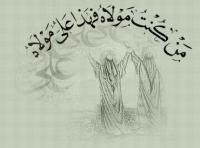 مَنْ كُنْتُ مَوْلَاهُ فَهَذَا عَلِىٌّ مَوْلَاهُ